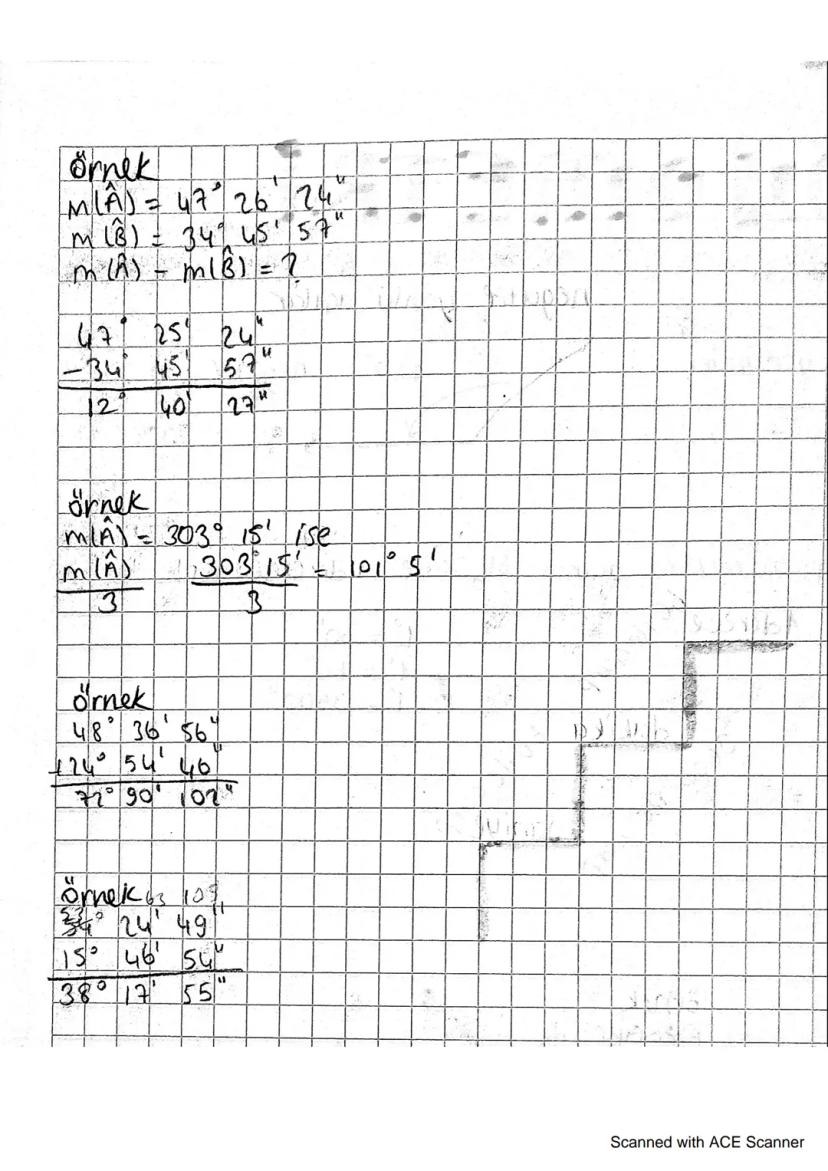 örnek
m(Â) = 47° 26' 24"
m(B̂) = 34° 45' 57"
m(Â) - m(B̂) = ?
47° 25' 24"
-34° 45' 57"
12° 40' 27"
örnek
m(Â) = 303° 15' ise
m(Â)/3 303° 15'/3 = 101° 5'
örnek
48° 36' 56"
+24° 54' 46"
72° 90' 102"
örnek 63 109
53
54° 24' 49"
15° 46' 54"
38° 17' 55"
Scanned with ACE Scanner